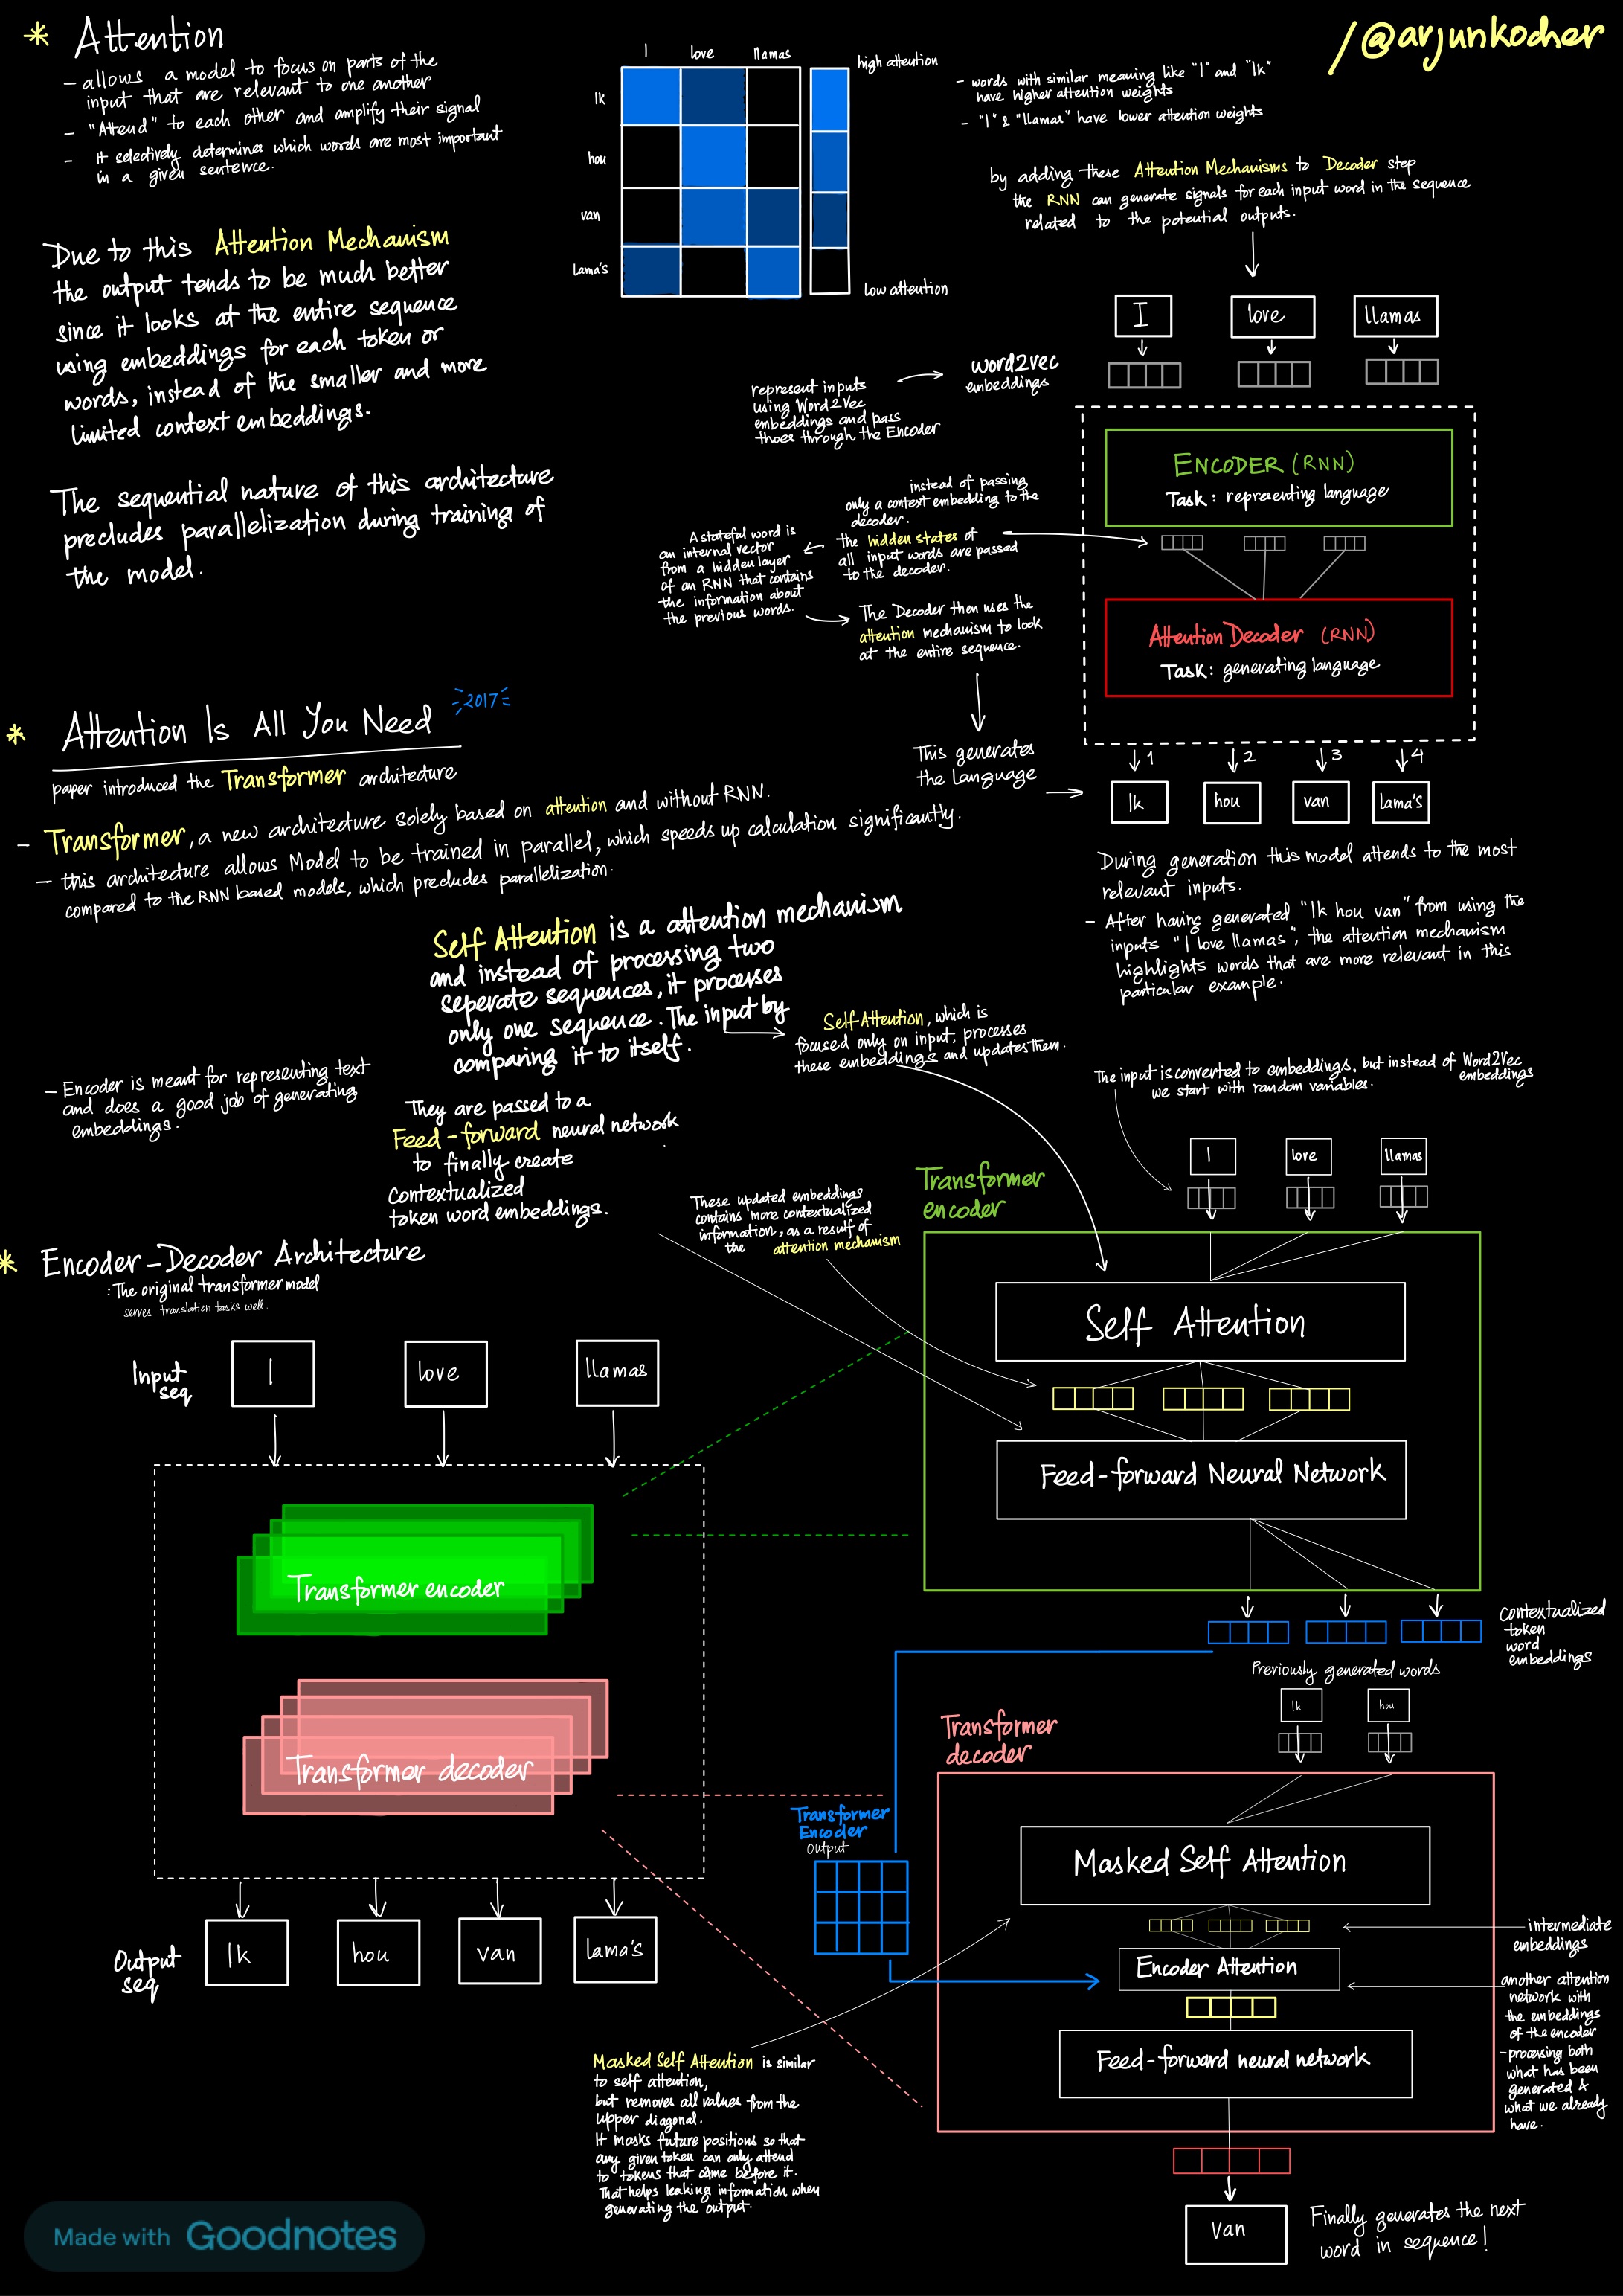 * Attention
- allows a model to focus on parts of the
input that are relevant to one another
- "Attend" to each other and amplify their signal
- It selectively determines which words are most important
in a given sentence.
Due to this Attention Mechanism
the output tends to be much better
since it looks at the entire sequence
using embeddings for each token or
words, instead of the smaller and more
limited context embeddings.
The sequential nature of this architecture
precludes parallelization during training of
the model.
I love llamas
Ik
hou
van
Lama's
high attention
low attention
/@arjunkocher
- words with similar meaning like "I" and "Ik"
have higher attention weights
- "I" & "llamas" have lower attention weights
by adding these Attention Mechanisms to Decoder step
the RNN can generate signals for each input word in the sequence
related to the potential outputs.
I love llamas
represent inputs
using Word2Vec
embeddings and pass
thoes through the Encoder
word2vec
embeddings
ENCODER (RNN)
Task: representing language
instead of passing
only a context embedding to the
decoder.
the hidden states of
all input words are passed
to the decoder.
A stateful word is
an internal vector
from a hidden layer
of an RNN that contains
the information about
the previous words.
The Decoder then uses the
attention mechanism to look
at the entire sequence.
Attention Decoder (RNN)
Task: generating language
This generates
the language
1 2 3 4
Ik hou van Lama's
During generation this model attends to the most
relevant inputs.
- After having generated "Ik hou van" from using the
inputs "I love llamas", the attention mechanism
highlights words that are more relevant in this
particular example.
* Attention Is All You Need
2017
paper introduced the Transformer architecture
- Transformer, a new architecture solely based on attention and without RNN.
- this architecture allows Model to be trained in parallel, which speeds up calculation significantly.
compared to the RNN based models, which precludes parallelization.
Self Attention is a attention mechanism
and instead of processing two
seperate sequences, it processes
only one sequence. The input by
comparing it to itself.
Self Attention, which is
focused only on input, processes
these embeddings and updates them.
- Encoder is meant for representing text
and does a good job of generating
embeddings.
They are passed to a
Feed-forward neural network
to finally create
contextualized
token word embeddings.
These updated embeddings
contains more contextualized
information, as a result of
the attention mechanism
The input is converted to embeddings, but instead of Word2Vec
embeddings
we start with random variables.
I love llamas
Transformer
encoder
Self Attention
Feed-forward Neural Network
contextualized
token
word
embeddings
* Encoder-Decoder Architecture
: The original transformer model
serves translation tasks well.
Input
seq
I love llamas
Transformer encoder
Transformer decoder
Output
seq
Ik hou van lama's
Previously generated words
Ik hou
Transformer
decoder
Transformer
Encoder
Output
Masked Self Attention
intermediate
embeddings
Encoder Attention
another attention
network with
the embeddings
of the encoder
- processing both
what has been
generated &
what we already
have.
Feed-forward neural network
Masked Self Attention is similar
to self attention,
but removes all values from the
upper diagonal.
It masks future positions so that
any given token can only attend
to tokens that came before it.
That helps leaking information when
generating the output.
Van
Finally generates the next
word in sequence!
Made with Goodnotes